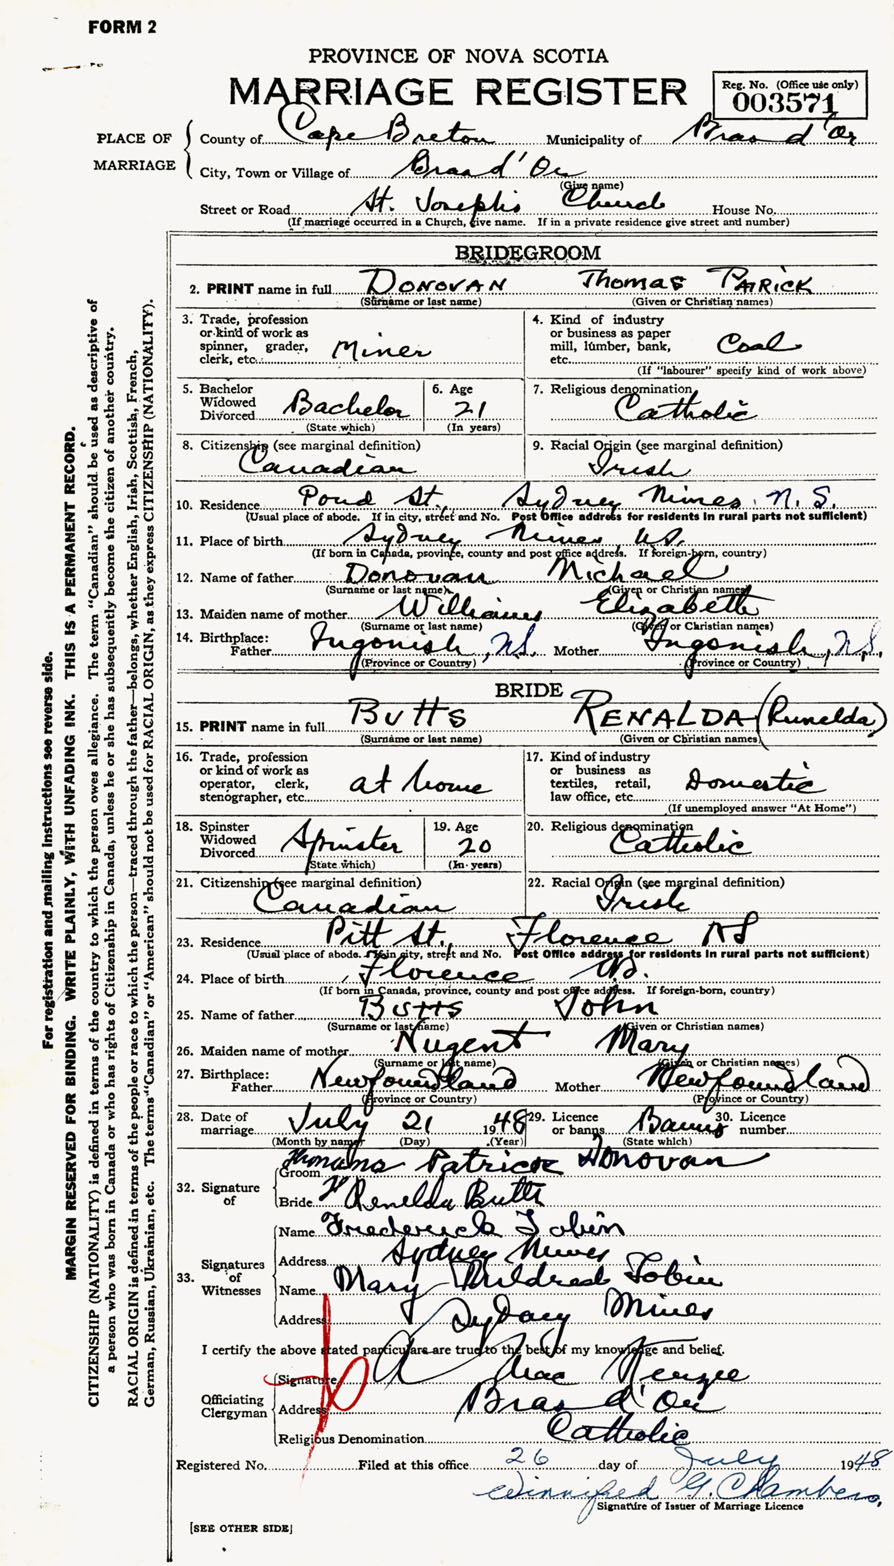 FORM 2
PROVINCE OF NOVA SCOTIA
MARRIAGE REGISTER
Reg. No. (Office use only)
003571
PLACE OF MARRIAGE
County of Cape Breton Municipality of Bras d'Or
City, Town or Village of Bras d'Or
(Give name)
Street or Road St. Joseph's Church House No.
(If marriage occurred in a Church, give name. If in a private residence give street and number)
BRIDEGROOM
2. PRINT name in full DONOVAN THOMAS PATRICK
(Surname or last name) (Given or Christian names)
3. Trade, profession or kind of work as spinner, grader, clerk, etc. Miner
4. Kind of industry or business as paper mill, lumber, bank, etc. Coal
(If "labourer" specify kind of work above)
5. Bachelor Widowed Divorced Bachelor
(State which)
6. Age 21
(In years)
7. Religious denomination Catholic
8. Citizenship (see marginal definition) Canadian
9. Racial Origin (see marginal definition) Irish
10. Residence Pond St., Sydney Mines N.S.
(Usual place of abode. If in city, street and No. Post Office address for residents in rural parts not sufficient)
11. Place of birth Sydney Mines N.S.
(If born in Canada, province, county and post office address. If foreign-born, country)
12. Name of father Donovan Michael
(Surname or last name) (Given or Christian names)
13. Maiden name of mother Williams Elizabeth
(Surname or last name) (Given or Christian names)
14. Birthplace: Father Ingonish, N.S. Mother Ingonish, N.S.
(Province or Country) (Province or Country)
BRIDE
15. PRINT name in full BUTTS RENALDA (Runelda)
(Surname or last name) (Given or Christian names)
16. Trade, profession or kind of work as operator, clerk, stenographer, etc. at home
17. Kind of industry or business as textiles, retail, law office, etc. Domestic
(If unemployed answer "At Home")
18. Spinster Widowed Divorced Spinster
(State which)
19. Age 20
(In years)
20. Religious denomination Catholic
21. Citizenship (see marginal definition) Canadian
22. Racial Origin (see marginal definition) Irish
23. Residence Pitt St., Florence NS
(Usual place of abode. If in city, street and No. Post Office address for residents in rural parts not sufficient)
24. Place of birth Florence
(If born in Canada, province, county and post office address. If foreign-born, country)
25. Name of father Butts John
(Surname or last name) (Given or Christian names)
26. Maiden name of mother Nugent Mary
(Surname or last name) (Given or Christian names)
27. Birthplace: Father Newfoundland Mother Newfoundland
(Province or Country) (Province or Country)
28. Date of marriage July 21 1948
(Month by name) (Day) (Year)
29. Licence or banns Banns
(State which)
30. Licence number
32. Signature of
Groom Thomas Patrick Donovan
Bride Renelda Butts
33. Signatures of Witnesses
Name Frederick Tobin
Address Sydney Mines
Name Mary Mildred Tobin
Address Sydney Mines
I certify the above stated particulars are true to the best of my knowledge and belief.
Officiating Clergyman
Signature A Mac Kenzie
Address Bras d'Or
Religious Denomination Catholic
Registered No. Filed at this office 26 day of July 1948
Winnifred G. Chambers,
Signature of Issuer of Marriage Licence
[SEE OTHER SIDE]
For registration and mailing instructions see reverse side.
MARGIN RESERVED FOR BINDING. WRITE PLAINLY, WITH UNFADING INK. THIS IS A PERMANENT RECORD.
CITIZENSHIP (NATIONALITY) is defined in terms of the country to which the person owes allegiance. The term "Canadian" should be used as descriptive of
a person who was born in Canada or who has rights of Citizenship in Canada, unless he or she has subsequently become the citizen of another country.
RACIAL ORIGIN is defined in terms of the people or race to which the person—traced through the father—belongs, whether English, Irish, Scottish, French,
German, Russian, Ukrainian, etc. The terms "Canadian" or "American" should not be used for RACIAL ORIGIN, as they express CITIZENSHIP (NATIONALITY).